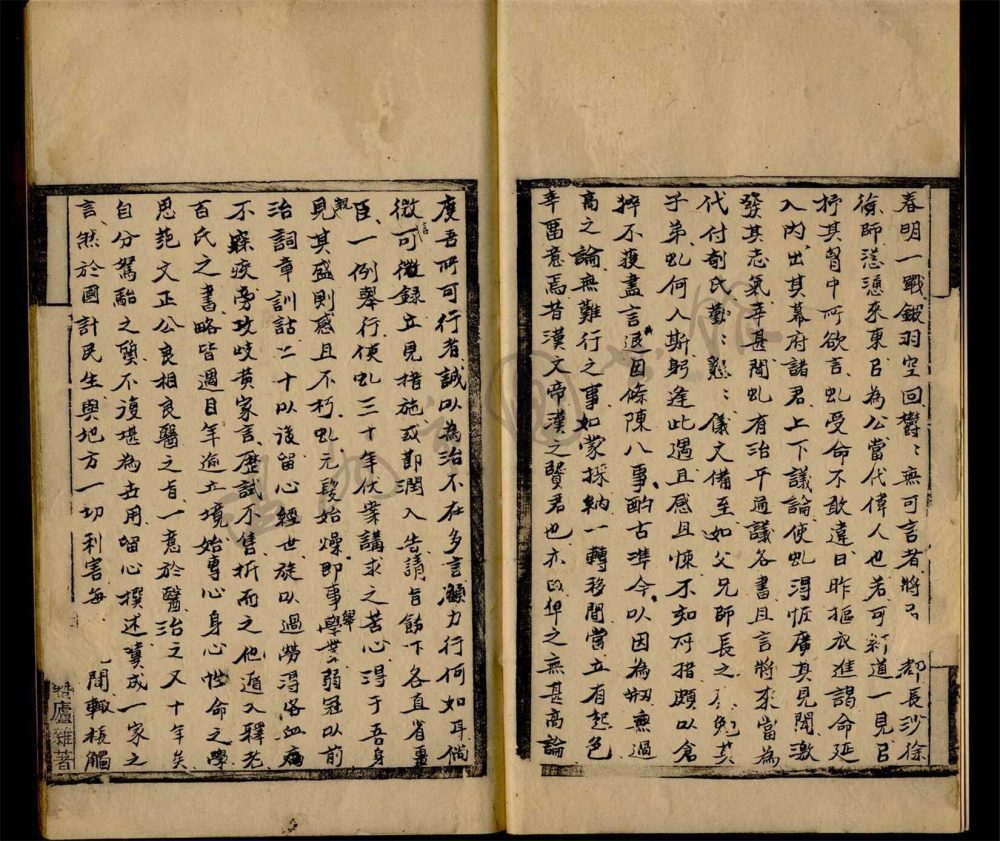 春明一戰鎩羽空回鬱〻無可言者將出都長沙徐
徐師慫慂來東召為公當代偉人也若可紆道一見召
抒其胷中所欲言虬受命不敢違日昨摳衣進謁命延
入內出其幕府諸君上下議論使虬得恢廣其見聞激
發其志氣幸甚聞虬有治平通議各書且言將來當為
代付剞氏勤〻懇〻儀文備至如父兄師長之勉其
子弟虬何人斯躬逢此遇且感且悚不知所措顧以倉
猝不獲盡言退因條陳八事酌古準今以因為捌無過
高之論無難行之事如蒙採納一轉移間當立有起色
幸畱意焉昔漢文帝漢之賢君也亦曰卑之無甚高論
度吾所可行者誠以為治不在多言顧力行何如耳倘
微信可徵録立見措施或即潤入告請旨飭下各直省畺
臣一例舉行使虬三十年伏案講求之苦心得于吾身
親見其盛則感且不朽虬元髮始燥即事舉業弱冠以前
治詞章訓詁二十以後留心經世旋以過勞得咯血病
不寐疾旁攻岐黃家言歷試不售折而之他遁入釋老
百氏之書略皆過目年逾立境始專心身心性命之學
思范文正公良相良醫之旨一意於醫治之又十年矣
自分駑駘之質不復堪為世用畱心撰述冀成一家之
言然於國計民生與地方一切利害每聞輒棖觸
廬雜著